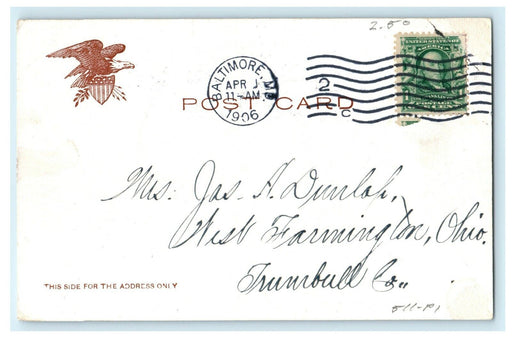 2.50
UNITED STATES OF AMERICA
BALTIMORE, MD.
APR 1
11-AM
1906
2
C
POST CARD
POSTAGE
Mrs. Jas. A. Dunlap,
West Farmington, Ohio.
Trumbull Co.,
THIS SIDE FOR THE ADDRESS ONLY